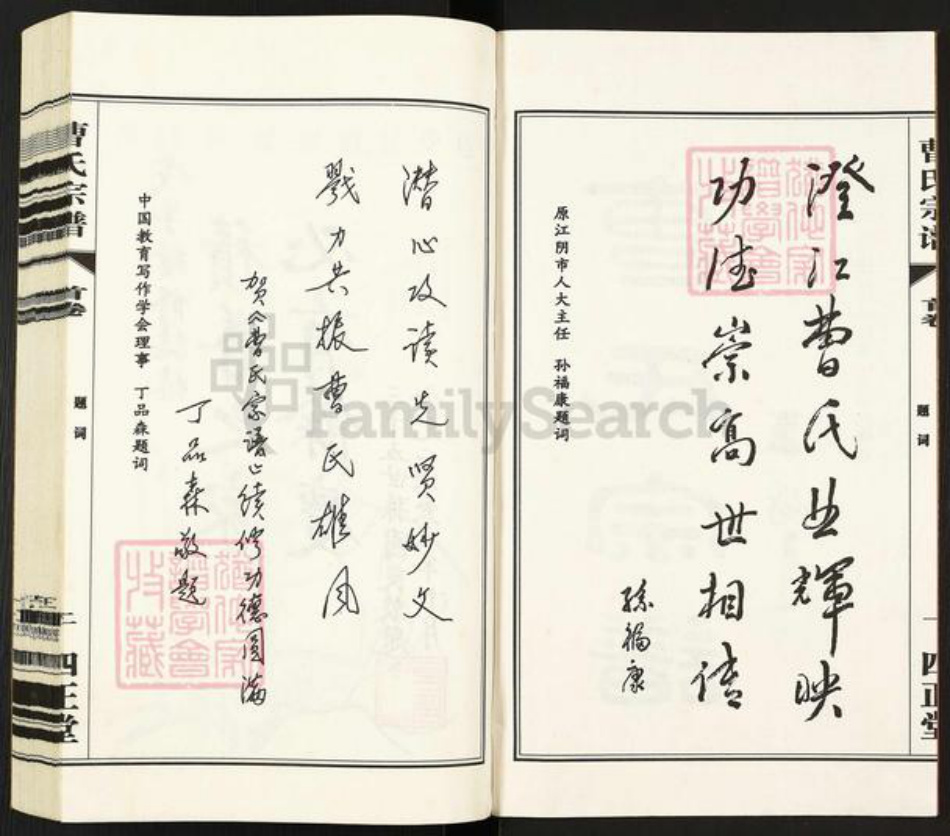 曹氏宗谱
首卷
题词
一
四正堂
澄江曹氏世辉映
功德崇高世相传
孙福康
原江阴市人大主任 孙福康题词
潜心攻读先贤妙文
戮力共振曹氏雄风
贺《曹氏宗谱》续修功德圆满
丁品森敬题
中国教育写作学会理事 丁品森题词
曹氏宗谱
首卷
题词
二
四正堂
FamilySearch